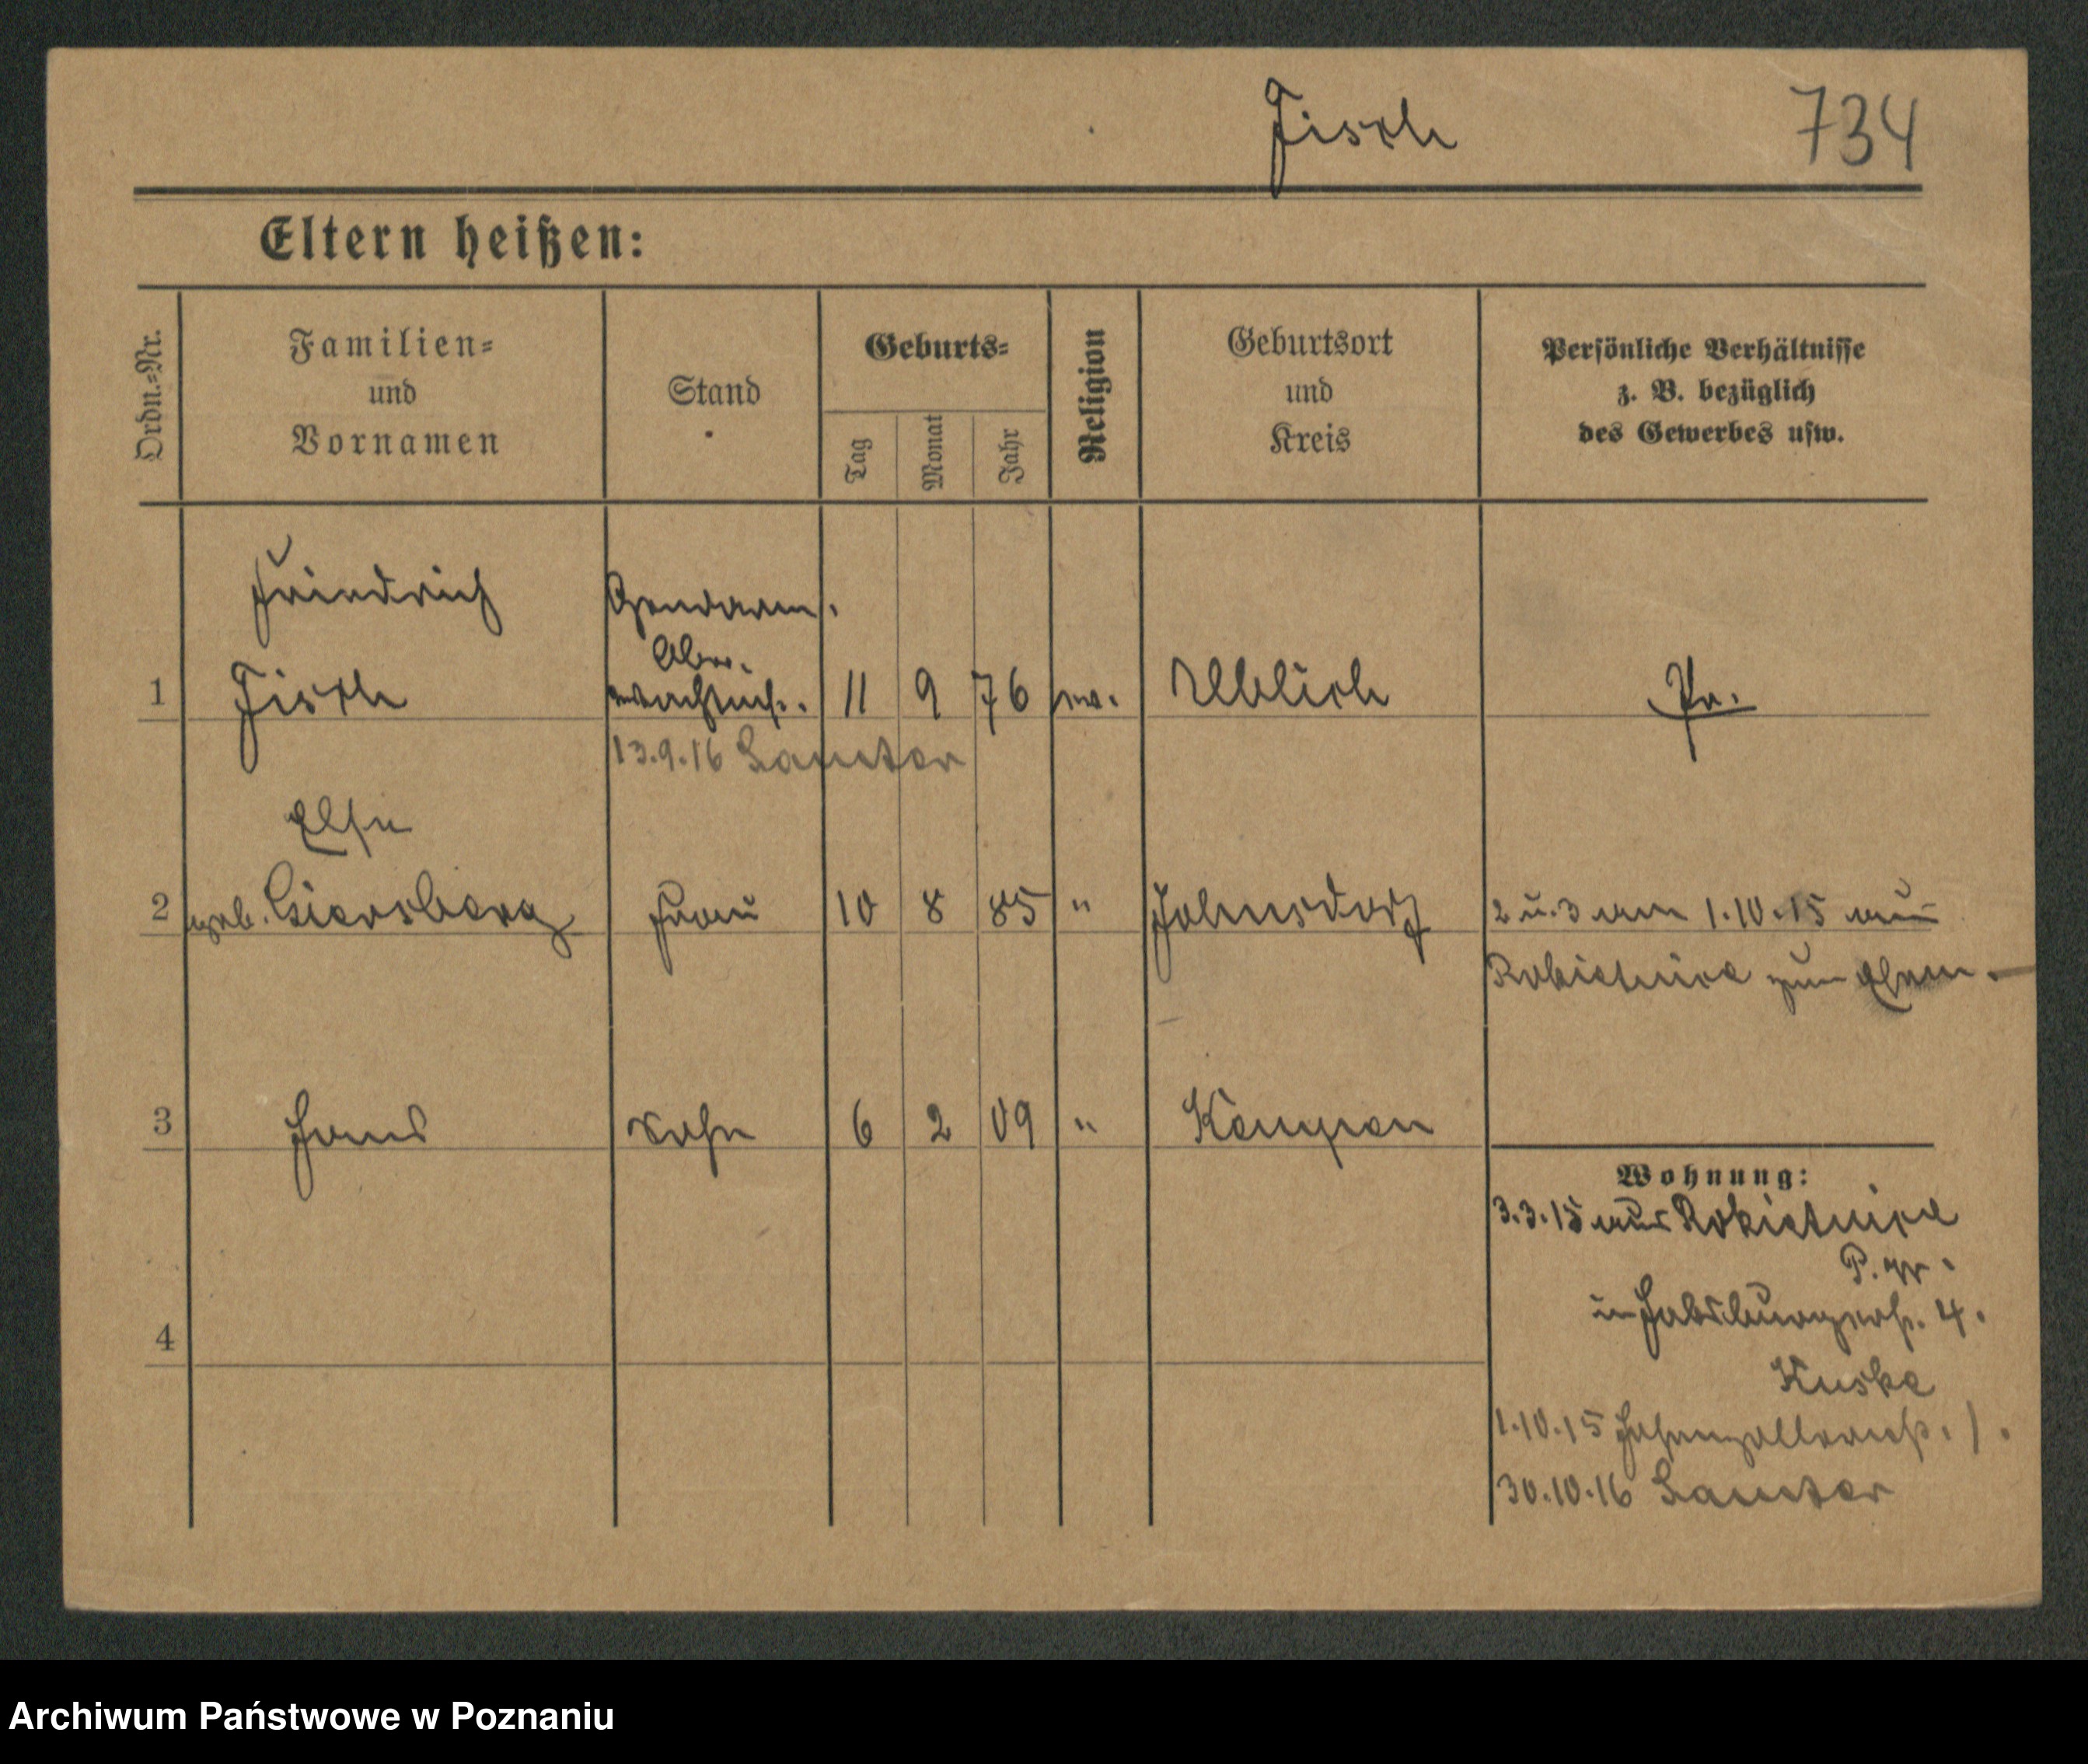 Fisch 734
Eltern heißen:
Ordn.-Nr.
Familien-
und
Vornamen
Stand
Geburts-
Tag
Monat
Jahr
Religion
Geburtsort
und
Kreis
Persönliche Verhältnisse
z. B. bezüglich
des Gewerbes usw.
Friedrich
Fisch
Gendarm.
Ober.
wachtm.
1 11 9 76 ev. Ulblich Pr.
13.9.16 Samter
Else
2 geb. Giersberg Frau 10 8 85 " Johnsdorf 2 u. 3 am 1.10.15 aus
Rokietnice zum Ehem.
3 Hans Sohn 6 2 09 " Kempen
Wohnung:
3.3.15 aus Rokietnice
P. W.
in Habsburgerstr. 4.
Kuske
4
1.10.15 Hohenzollernstr. 1.
30.10.16 Samter
Archiwum Państwowe w Poznaniu